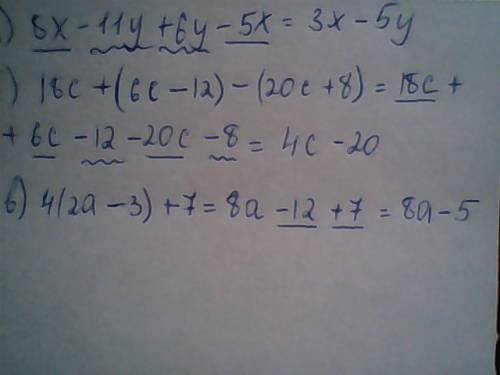 ) 8x - 11y + 6y - 5x = 3x - 5y
) 18c + (6c - 12) - (20c + 8) = 18c +
+ 6c - 12 - 20c - 8 = 4c - 20
в) 4(2a - 3) + 7 = 8a - 12 + 7 = 8a - 5